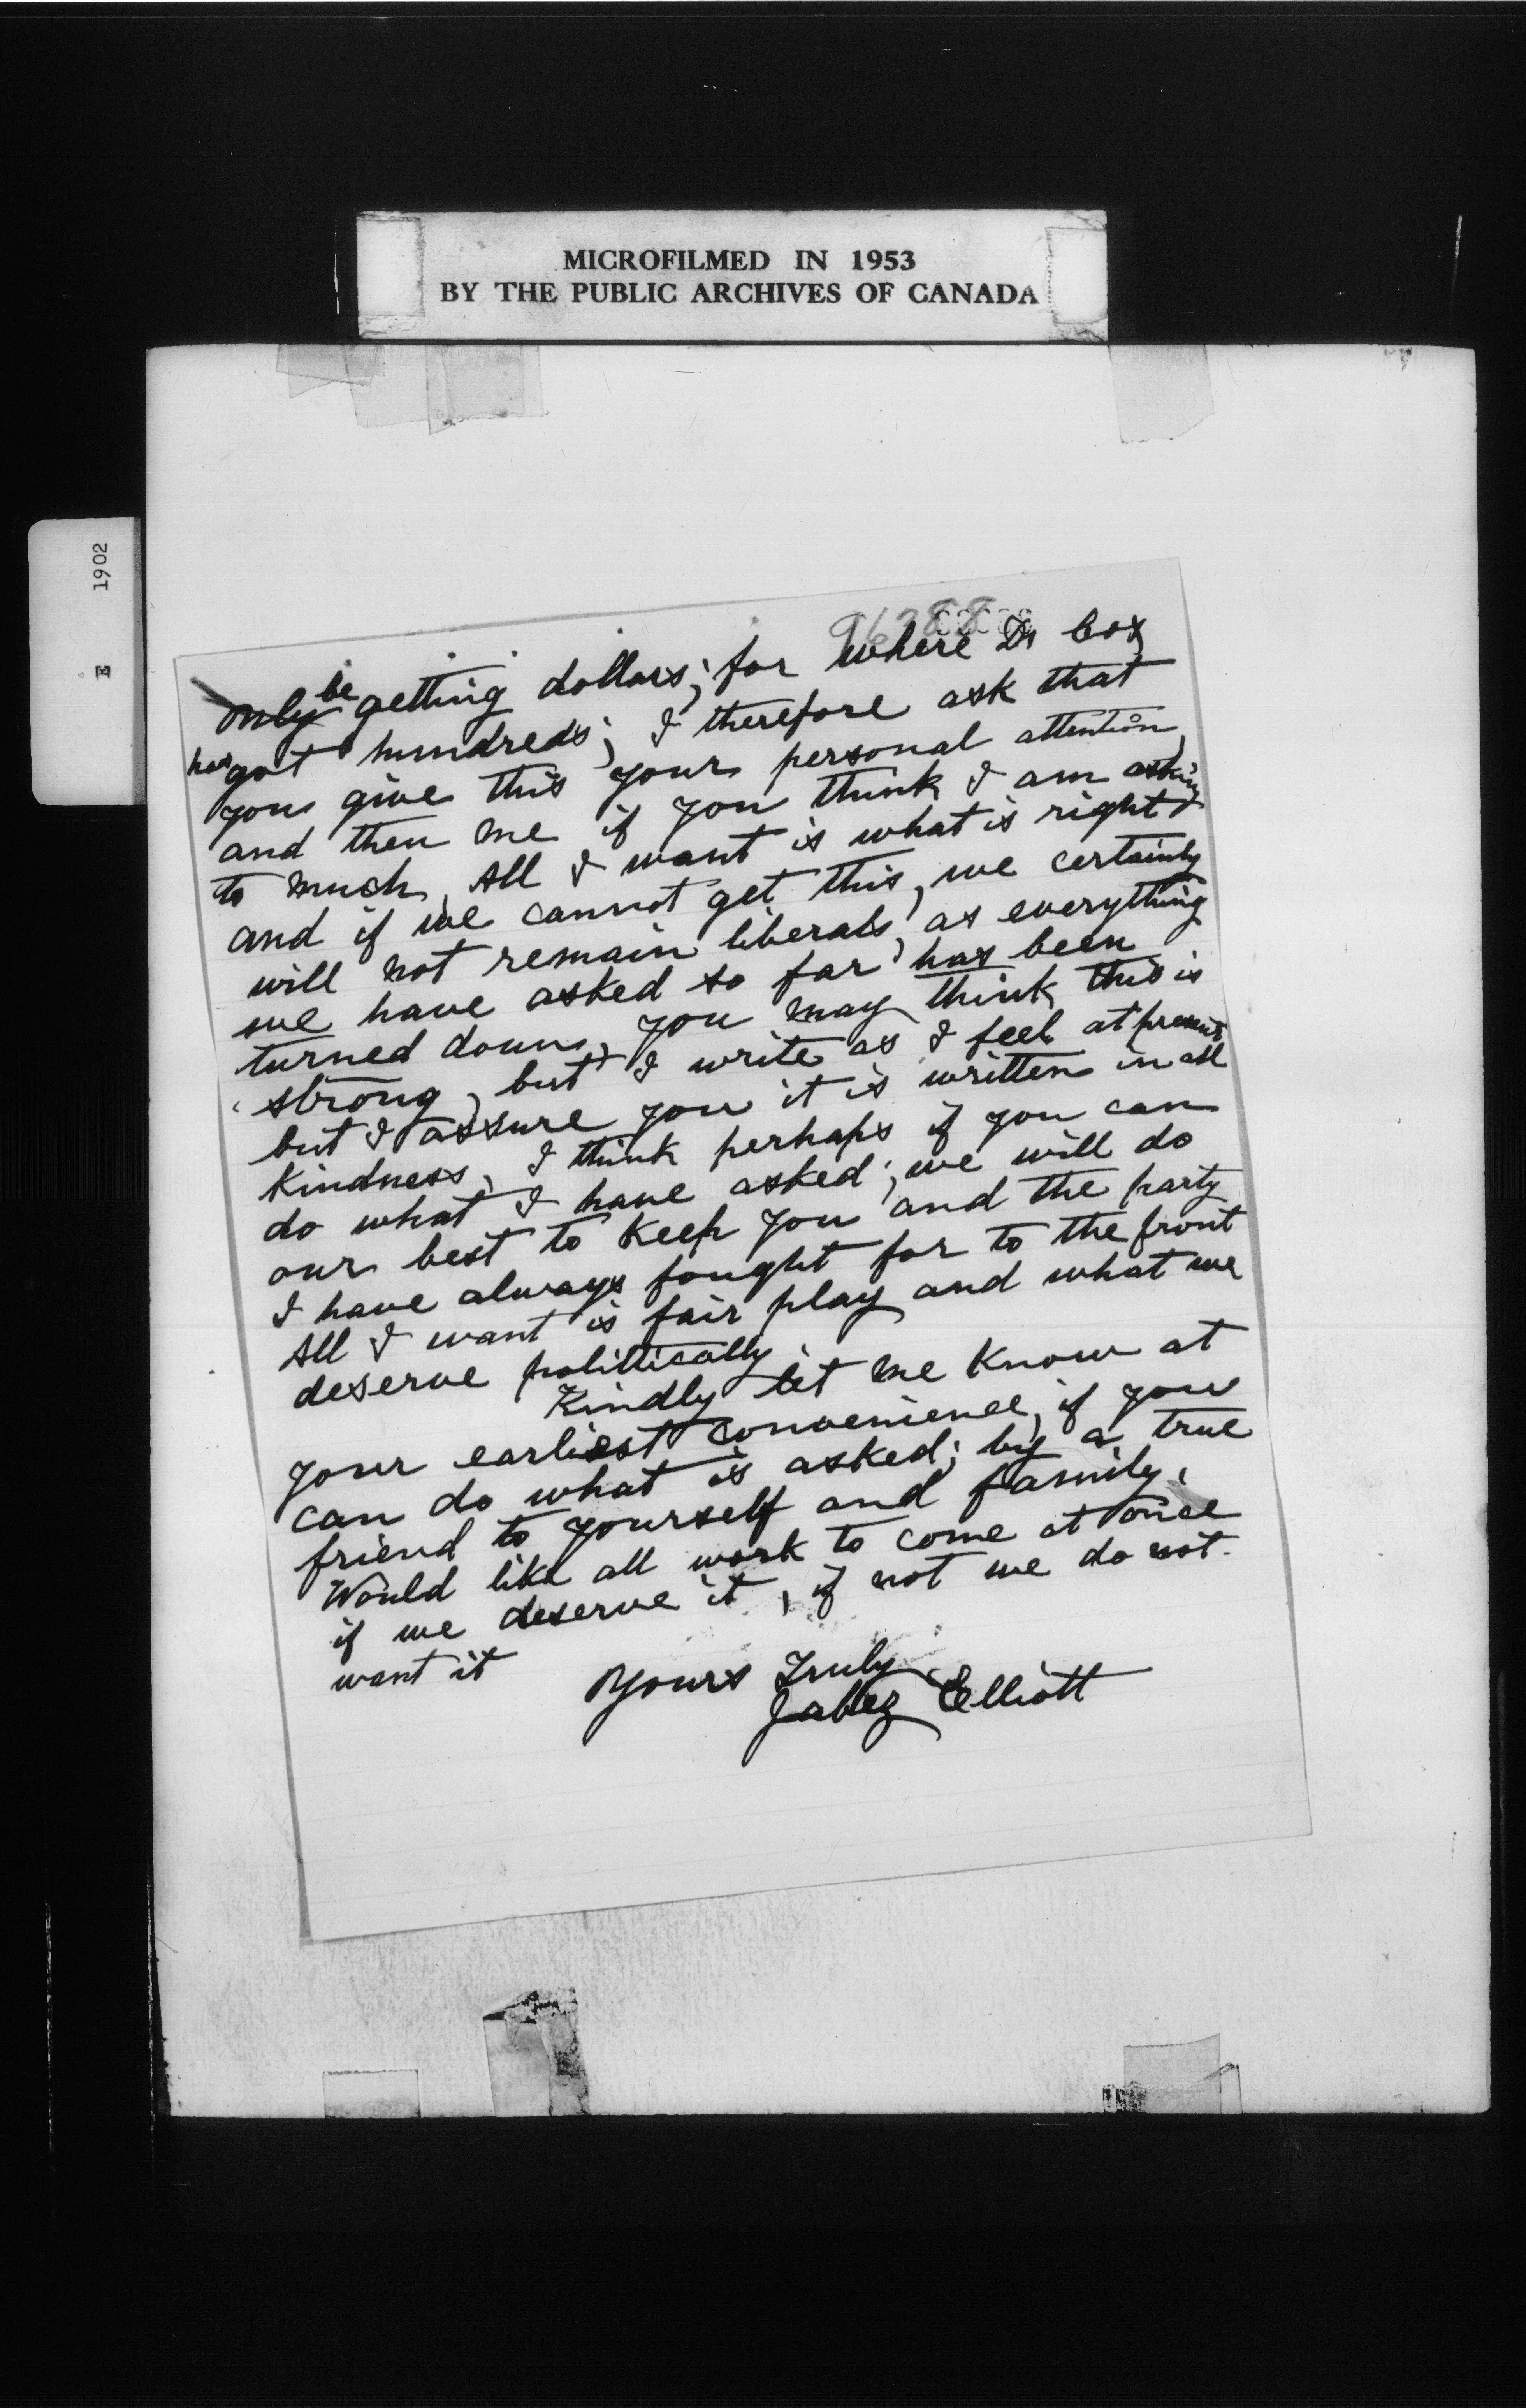 MICROFILMED IN 1953
BY THE PUBLIC ARCHIVES OF CANADA
1902
E
96288
only be getting dollars; for where Dr Cox
has got hundreds; I therefore ask that
you give this your personal attention,
and then me if you think I am asking
to much, All I want is what is right &
and if we cannot get this, we certainly
will not remain liberals, as everything
we have asked so far has been
turned down, you may think this is
strong, but I write as I feel at present
but I assure you it is written in all
Kindness, I think perhaps if you can
do what I have asked; we will do
our best to keep you and the party
I have always fought for to the front
All I want is fair play and what we
deserve polittically.
Kindly let me know at
your earliest convenience, if you
can do what is asked; by a true
friend to yourself and family.
Would like all work to come at once
if we deserve it, if not we do not
want it
Yours Truly
Jabez Elliott